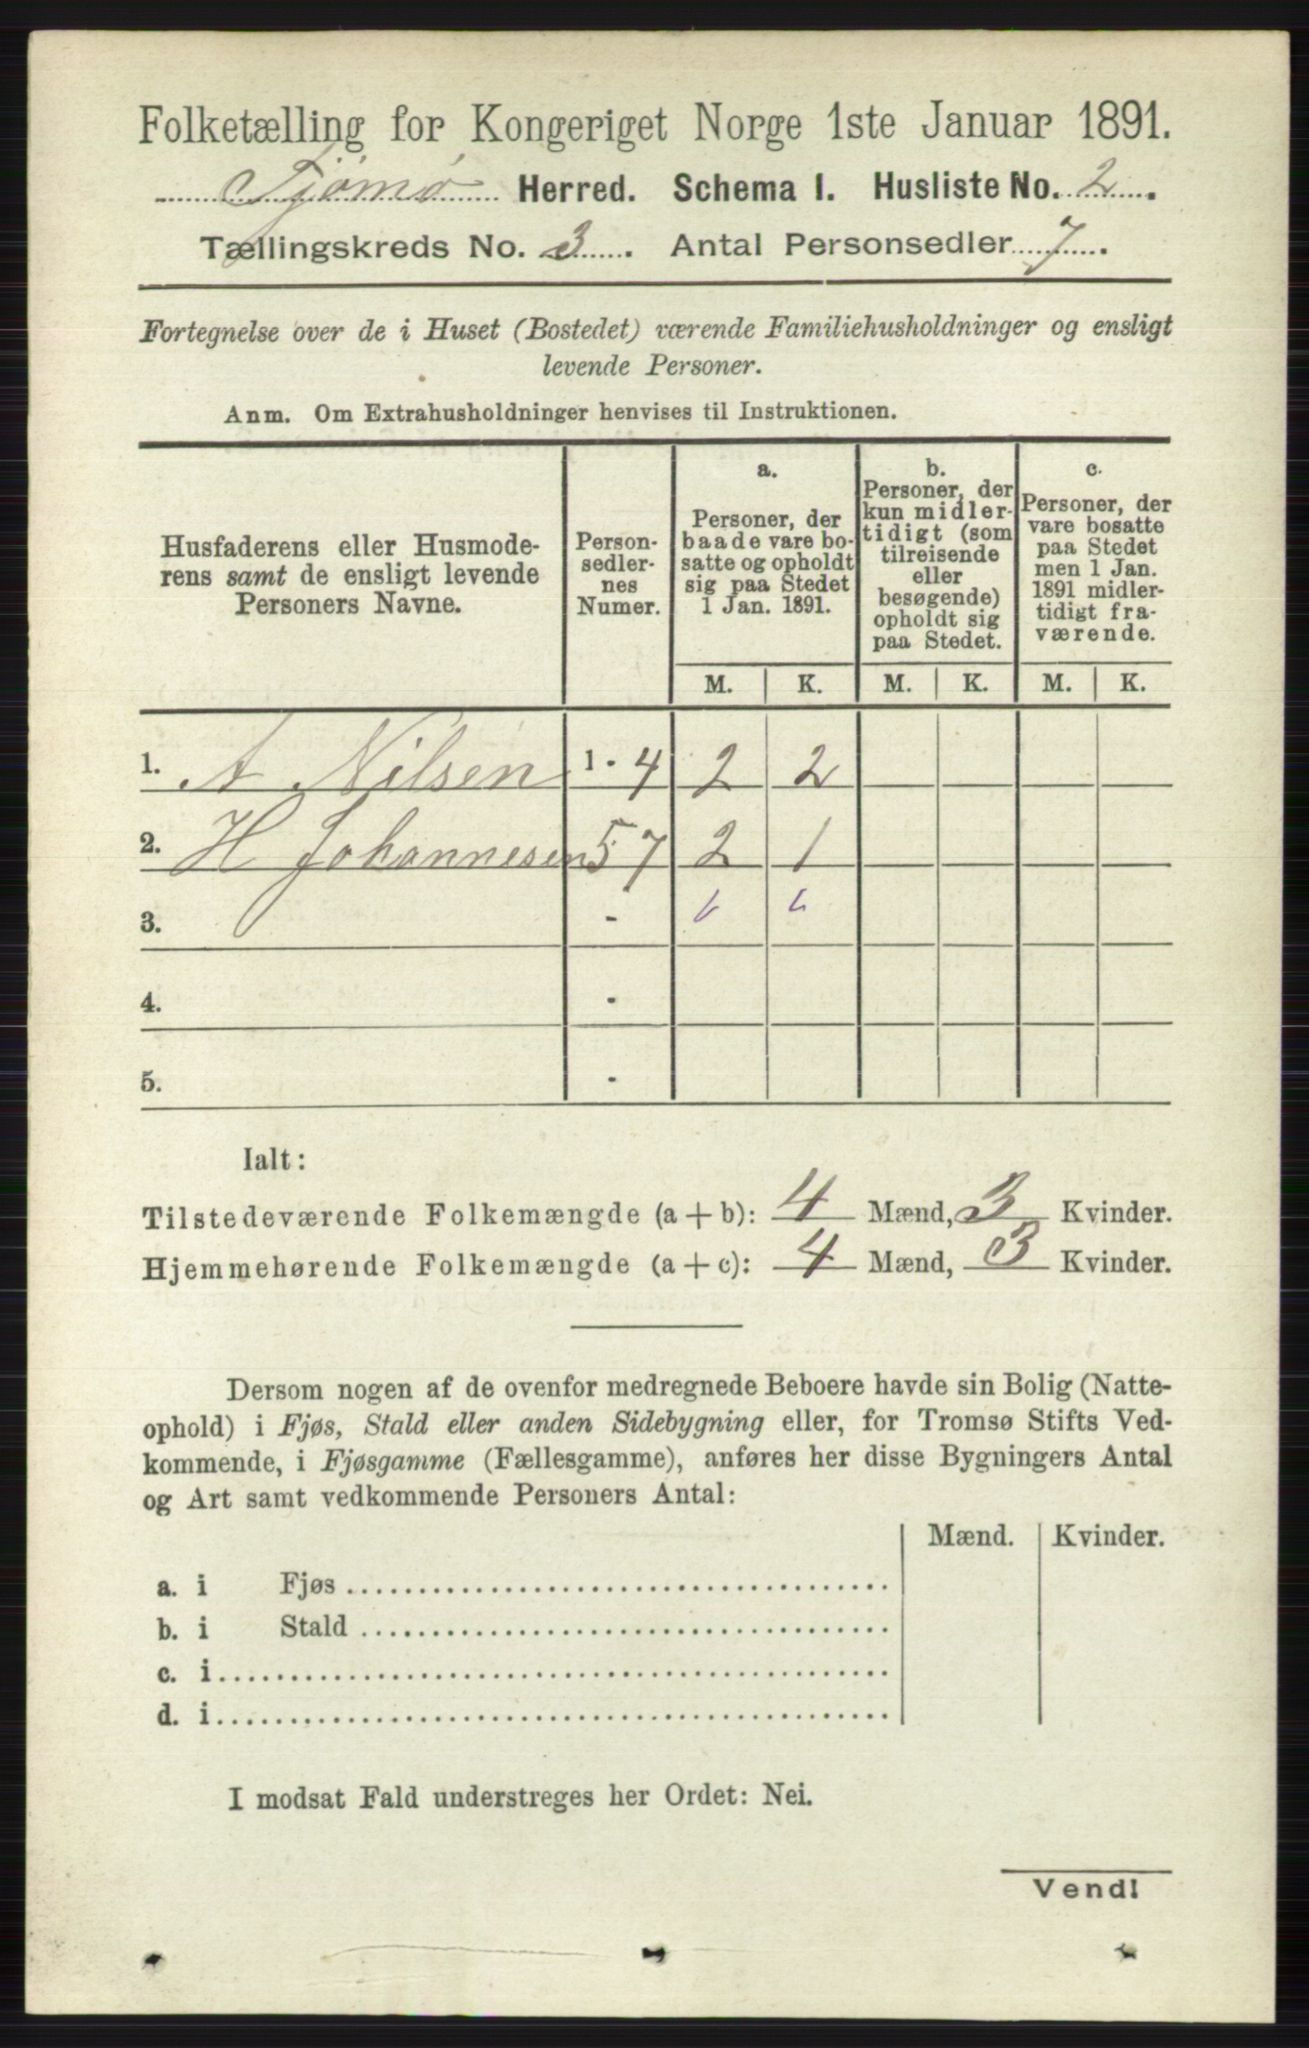 Folketælling for Kongeriget Norge 1ste Januar 1891.
Tjømø Herred. Schema I. Husliste No. 2.
Tællingskreds No. 3. Antal Personsedler 7.
Fortegnelse over de i Huset (Bostedet) værende Familiehusholdninger og ensligt
levende Personer.
Anm. Om Extrahusholdninger henvises til Instruktionen.
Husfaderens eller Husmode-
rens samt de ensligt levende
Personers Navne.
Person-
sedler-
nes
Numer.
a.
Personer, der
baade vare bo-
satte og opholdt
sig paa Stedet
1 Jan. 1891.
b.
Personer, der
kun midler-
tidigt (som
tilreisende
eller
besøgende)
opholdt sig
paa Stedet.
c.
Personer, der
vare bosatte
paa Stedet
men 1 Jan.
1891 midler-
tidigt fra-
værende.
M. K. M. K. M. K.
1. A Nilsen 1 - 4 2 2
2. H Johannesen 5 7 2 1
3. -
4. -
5. -
Ialt:
Tilstedeværende Folkemængde (a + b): 4 Mænd, 3 Kvinder.
Hjemmehørende Folkemængde (a + c): 4 Mænd, 3 Kvinder.
Dersom nogen af de ovenfor medregnede Beboere havde sin Bolig (Natte-
ophold) i Fjøs, Stald eller anden Sidebygning eller, for Tromsø Stifts Ved-
kommende, i Fjøsgamme (Fællesgamme), anføres her disse Bygningers Antal
og Art samt vedkommende Personers Antal:
Mænd. Kvinder.
a. i Fjøs
b. i Stald
c. i
d. i
I modsat Fald understreges her Ordet: Nei.
Vend!